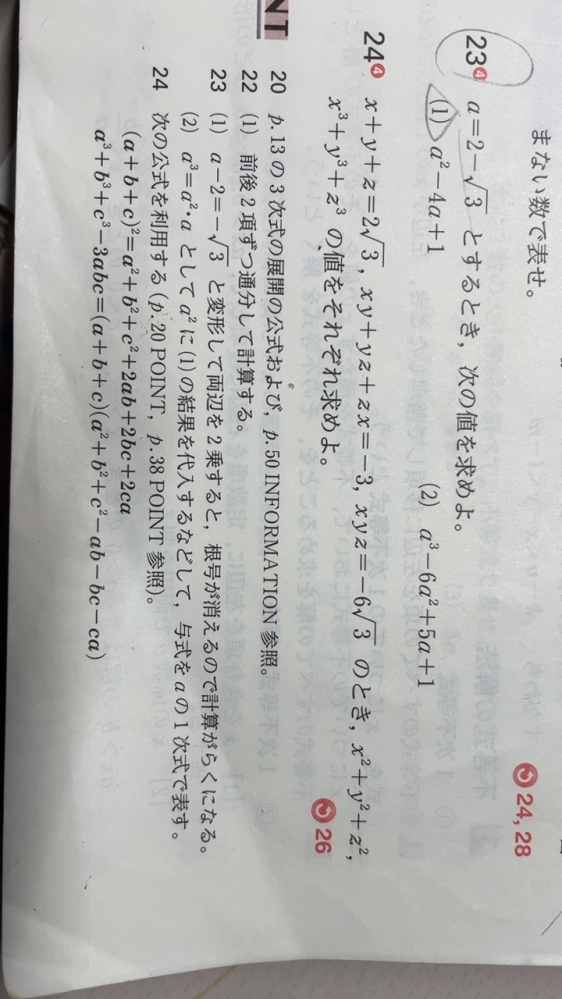 まない数で表せ。
24, 28
23④ a=2-√3 とするとき，次の値を求めよ。
(1) a²-4a+1 (2) a³-6a²+5a+1
24④ x+y+z=2√3, xy+yz+zx=-3, xyz=-6√3 のとき，x²+y²+z²,
x³+y³+z³ の値をそれぞれ求めよ。
26
NT
20 p.13 の 3 次式の展開の公式および，p.50 INFORMATION 参照。
22 (1) 前後 2 項ずつ通分して計算する。
23 (1) a-2=-√3 と変形して両辺を 2 乗すると，根号が消えるので計算がらくになる。
(2) a³=a²·a として a² に (1) の結果を代入するなどして，与式を a の 1 次式で表す。
24 次の公式を利用する (p.20 POINT, p.38 POINT 参照)。
(a+b+c)²=a²+b²+c²+2ab+2bc+2ca
a³+b³+c³-3abc=(a+b+c)(a²+b²+c²-ab-bc-ca)